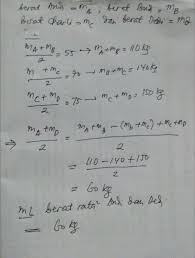 berat Anis = m_A , berat Budi = m_B
berat Charli = m_C dan berat Deni = m_D
(m_A + m_B)/2 = 55 → m_A + m_B = 110 kg
(m + m_C)/2 = 70 → m_B + m_C = 140 kg
(m_C + m_D)/2 = 75 → m_C + m_D = 150 kg
⇒ (m_A + m_D)/2 = (m_A + m_B - (m_B + m_C) + m_C + m_D)/2
= (110 - 140 + 150)/2
= 60 kg
berat rata² dan
= 60 kg